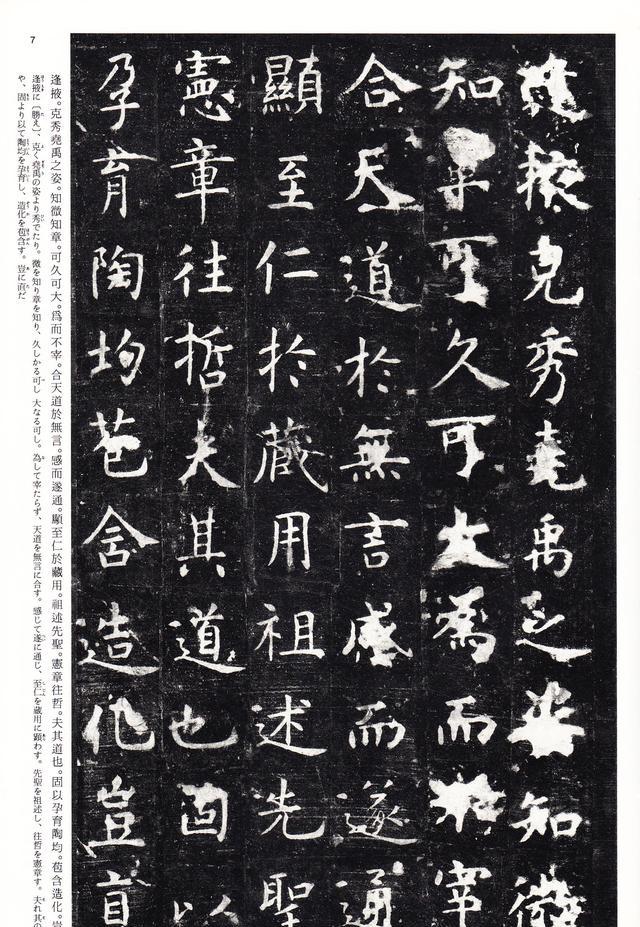 逢掖克秀堯禹之姿知微
知章可久可大為而不宰
合天道於無言感而遂通
顯至仁於藏用祖述先聖
憲章往哲夫其道也固以
孕育陶均苞含造化豈直
逢掖。克秀堯禹之姿。知微知章。可久可大。爲而不宰。合天道於無言。感而遂通。顯至仁於藏用。祖述先聖。憲章往哲。夫其道也。固以孕育陶均。苞含造化。
逢掖に〔勝え〕、克く堯禹の姿より秀でたり。微を知り章を知り、久しかる可し 大なる可し。為して宰たらず、天道を無言に合す。感じて遂に通じ、至仁を蔵用に顕わす。先聖を祖述し、往哲を憲章す。夫れ其の
や、固より以て陶均を孕育し、造化を苞含す。豈に直だ
7